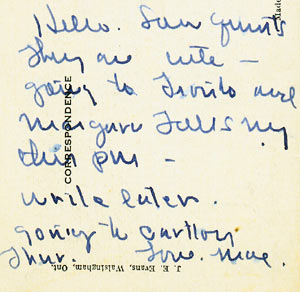 Hello. Saw Quints
They are cute –
going to Toronto and
Niagara Falls ny
this pm –
write later.
going to
Thur. Love. Mae.
CORRESPONDENCE
J. E. Evans, Walsingham, Ont.
Made